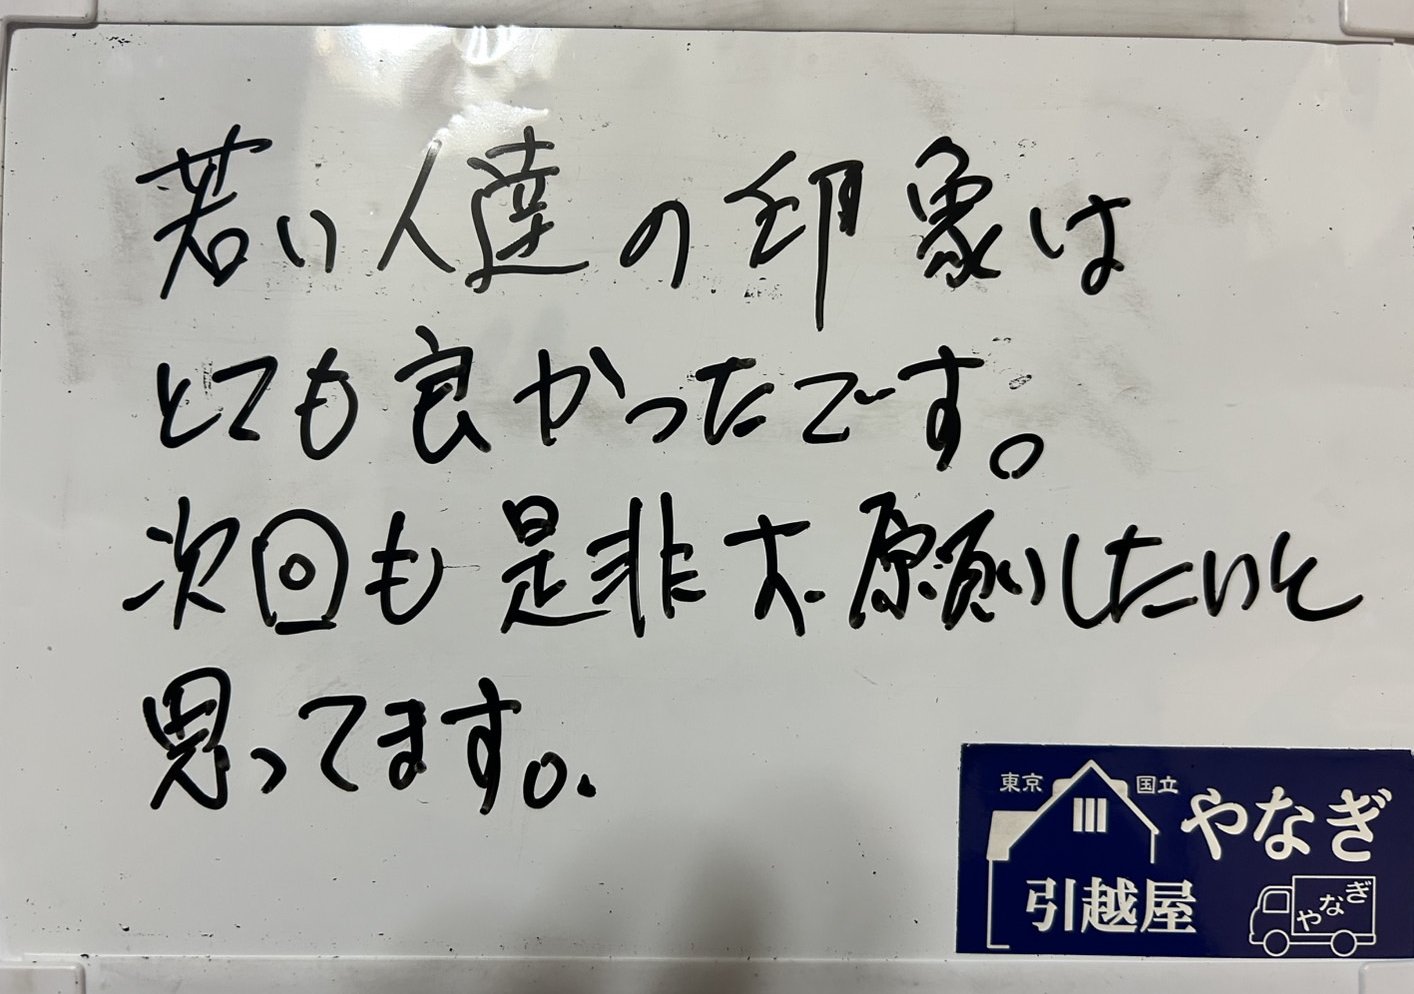 若い人達の印象は
とても良かったです。
次回も是非お願いしたいと
思ってます。
東京 国立 やなぎ
引越屋 やなぎ